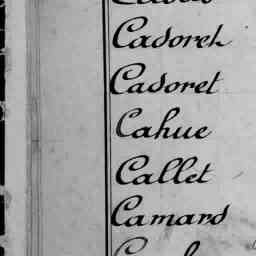 Cadoret
Cadoret
Cahue
Callet
Camard